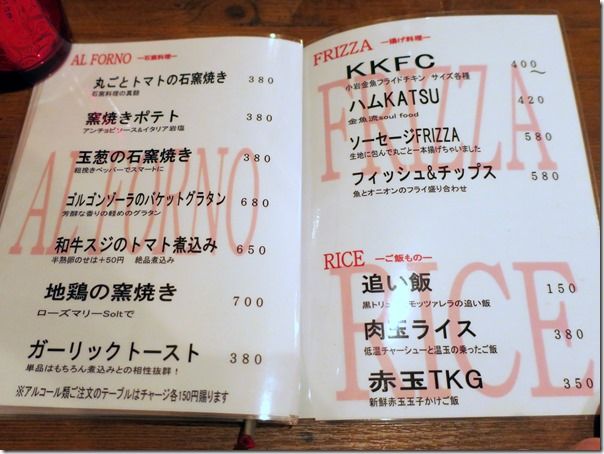 AL FORNO ―石窯料理―
丸ごとトマトの石窯焼き 380
石窯料理の真髄
窯焼きポテト 380
アンチョビソース&イタリア岩塩
玉葱の石窯焼き 380
粗挽きペッパーでスマートに
ゴルゴンゾーラのバケットグラタン 680
芳醇な香りの軽めのグラタン
和牛スジのトマト煮込み 650
半熟卵のせは+50円 絶品煮込み
地鶏の窯焼き 700
ローズマリーSoltで
ガーリックトースト 380
単品はもちろん煮込みとの相性抜群!
※アルコール類ご注文のテーブルはチャージ各150円賜ります
AL FORNO
FRIZZA ―揚げ料理―
KKFC 400～
小岩金魚フライドチキン サイズ各種
ハムKATSU 420
金魚流soul food
ソーセージFRIZZA 580
生地に包んで丸ごと一本揚げちゃいました
フィッシュ&チップス 580
魚とオニオンのフライ盛り合わせ
FRIZZA
RICE ―ご飯もの―
追い飯 150
黒トリュ モッツァレラの追い飯
肉玉ライス 380
低温チャーシューと温玉の乗ったご飯
赤玉TKG 350
新鮮赤玉玉子かけご飯
RICE